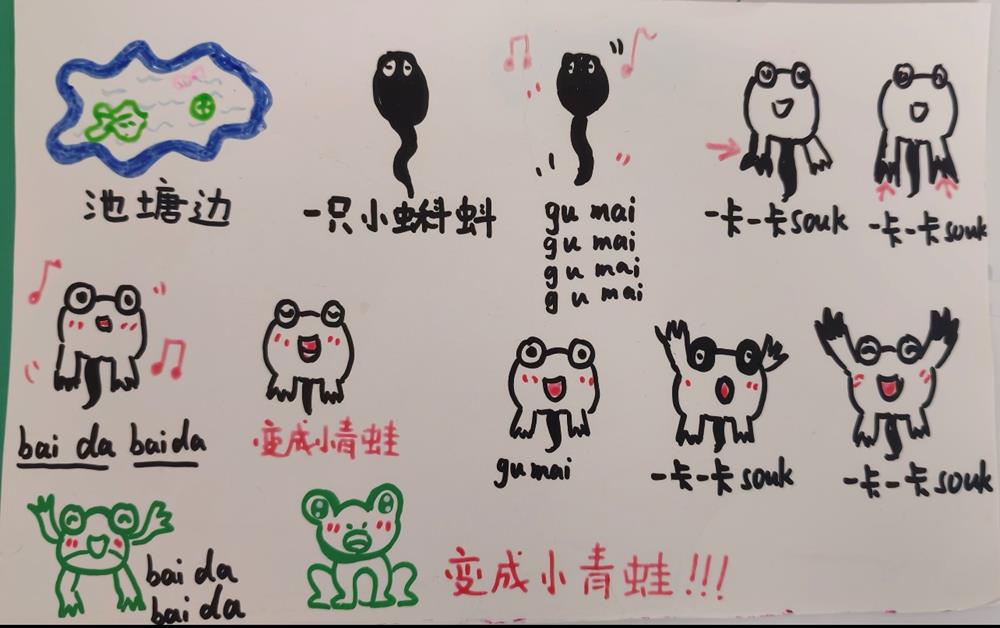 池塘边
一只小蝌蚪
gu mai
gu mai
gu mai
gu mai
一卡一卡souk
一卡一卡souk
bai da baida
变成小青蛙
gu mai
一卡一卡souk
一卡一卡souk
bai da
bai da
变成小青蛙!!!